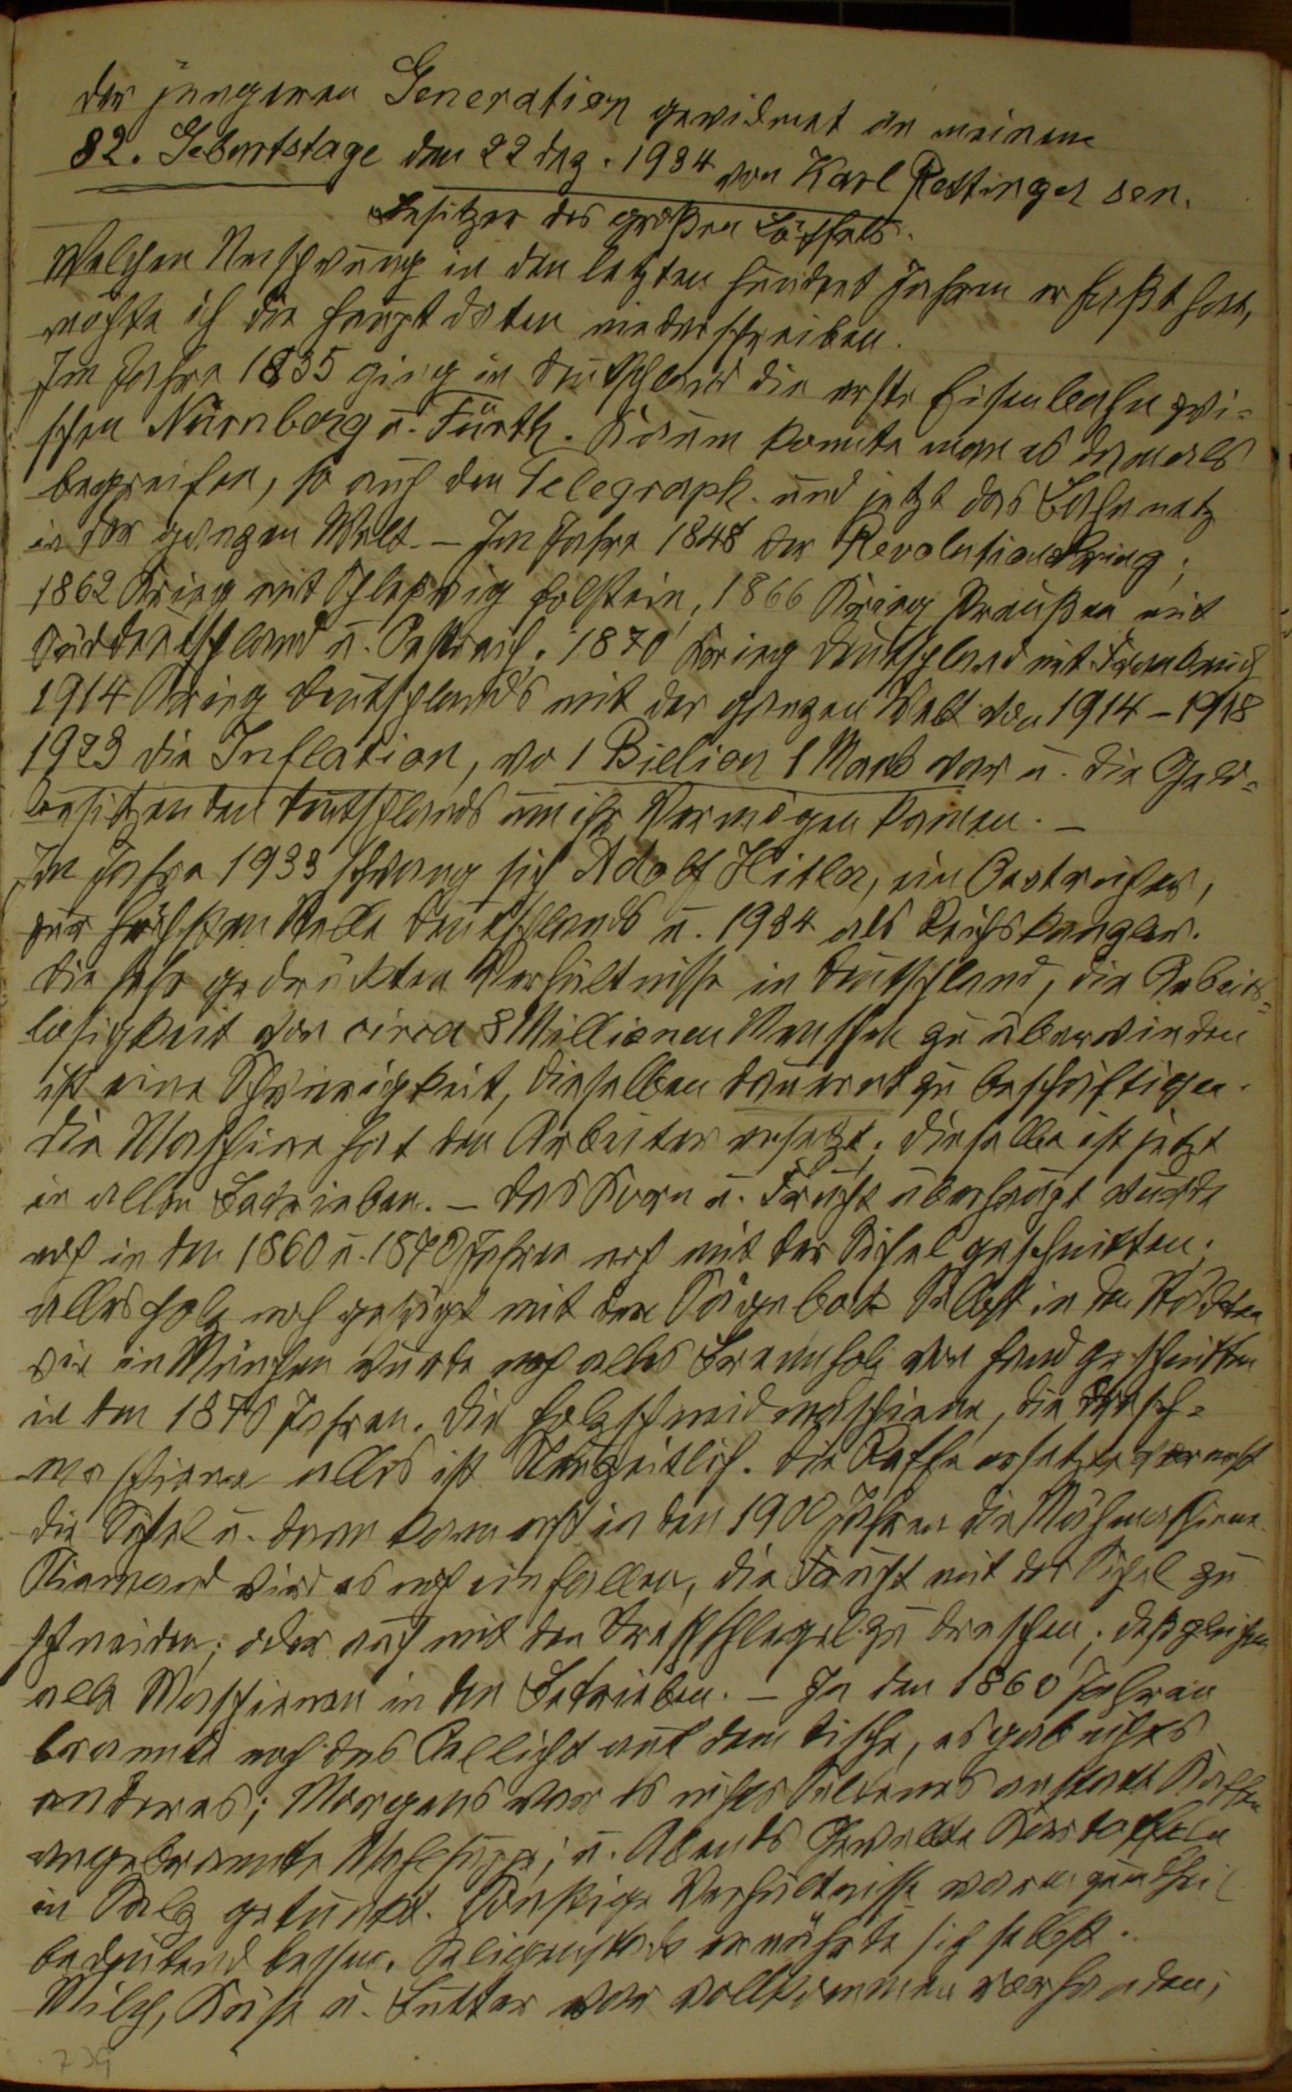 der jüngeren Generation gewidmet an meinem
82. Geburtstage den 22 dez. 1934 von Karl Rettinger sen.
Besitzer des großen Löffels.
Welchen Umschwung in den letzten hundert Jahren er faßt hat,
möchte ich die Hauptdaten niederschreiben.
Im Jahre 1835 ging in Deutschland die erste Eisenbahn zwi=
schen Nürnberg u. Fürth. Kaum konnte man es damals
begreifen, so auch den Telegraph. und jetzt das Bahnnetz
in der ganzen Welt. – Im Jahre 1848 der Revolutionskrieg;
1862 Krieg mit Schleswig Holstein, 1866 Krieg Preußen mit
Süddeutschland u. Oestreich. 1870 Krieg Deutschland mit Frankreich
1914 Krieg Deutschlands mit der ganzen Welt von 1914 – 1918
1923 die Inflation, wo 1 Bielion 1 Mark war u. die Geld=
besitzenden Deutschlands um ihr Vermögen kamen. –
Im Jahre 1933 schwang sich Adolf Hitler, ein Oestreicher,
zur höchsten Stelle Deutschlands u. 1934 als Reichskanzler.
Die sehr gedrückten Verhältnisse in Deutschland, die Arbeits=
losigkeit von circa 8 Millionen Menschen zu überwinden
ist eine Schwierigkeit, dieselben dauernd zu beschäftigen.
Die Maschine hat den Arbeiter ersetzt; dieselbe ist jetzt
in allen Betrieben. – Das Korn u. Frucht überhaupt wurde
noch in den 1860 u. 1870 Jahren noch mit der Sichel geschnitten;
alles Holz noch gesägt mit dem Sägebock Selbst in den Städten
wie in München wurde noch alles Brennholz von Hand geschnitten
in den 1870 Jahren. Die Holzschneidmaschiene, die Dresch=
maschiene alles ist Neuzeitlich. Die Raffe ersetzte vorerst
die Sichel u. dann kam erst in den 1900 Jahren die Mähmaschiene.
Niemand wird es noch einfallen, die Frucht mit der Sichel zu
schneiden; oder auch mit den Dreschflegel zu dreschen; deßgleichen
alle Maschienen in den Betrieben. – In den 1860 Jahren
brannte noch das Oellicht auf dem Tische, es gab nichts
anderes; Morgens war es nichts Seltenes anstatt Kaffee
angebrannte Mehlsuppe; u. Abends Gewellte Kardoffeln
in Salz getunkt. Sonstige Verhältnisse waren zum Theil
bedeutend besser. Seligenstadt ernährte sich selbst.
Milch, Käse u. Butter war vollkommen vorhanden;